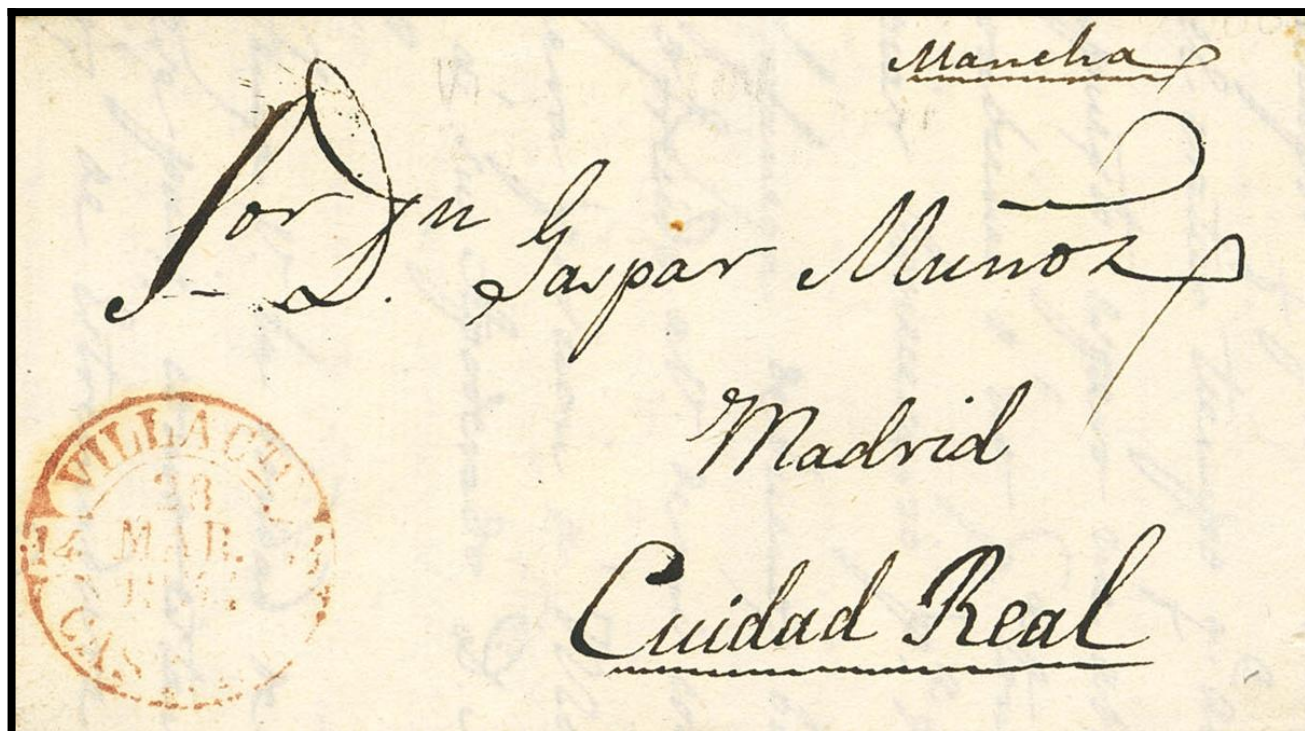 Mancha
Sor Dn
D. Gaspar Muñoz
Madrid
Cuidad Real
VILLACA
28
MAR.
CAS